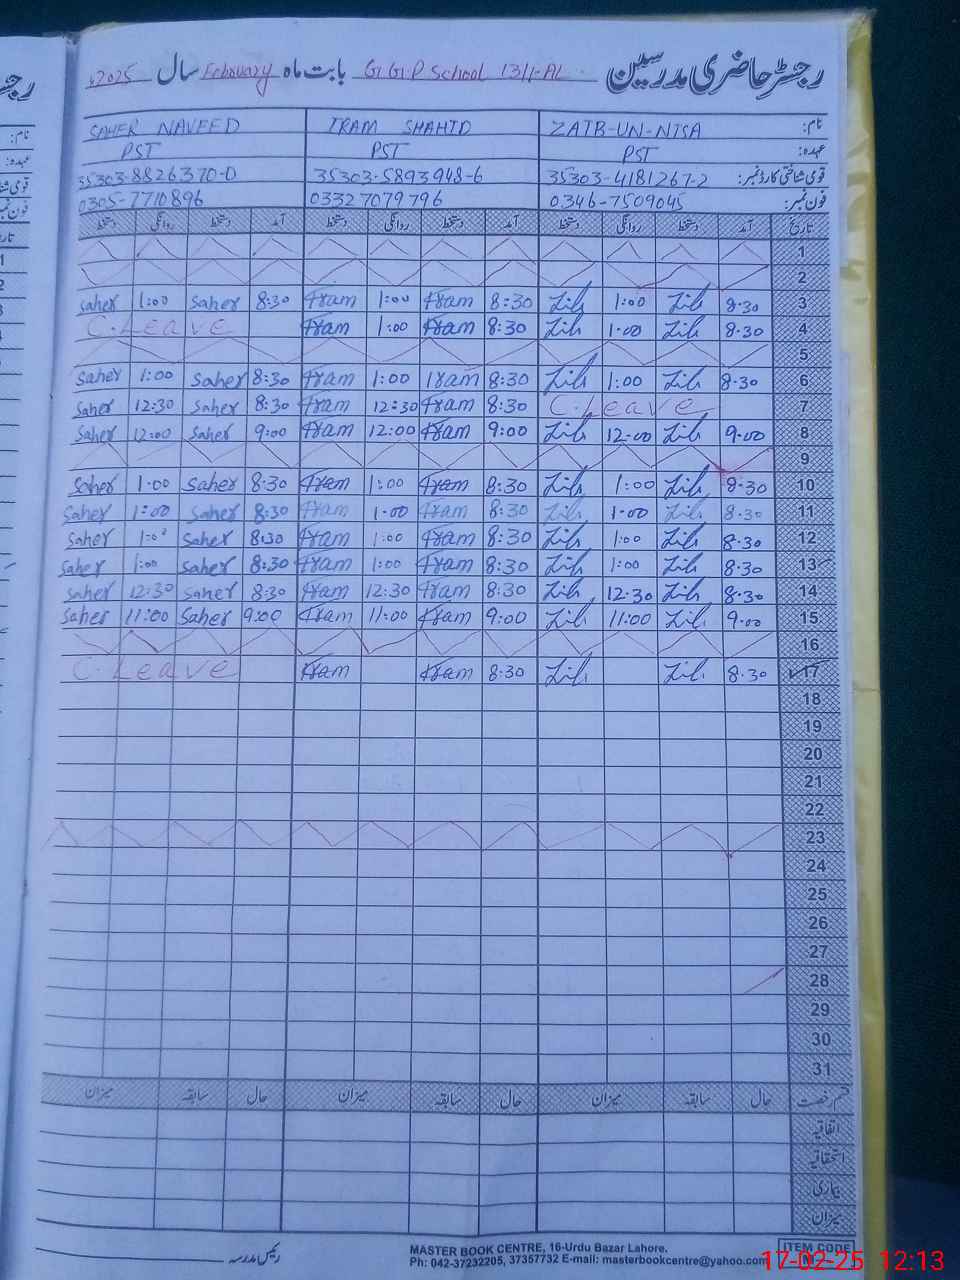 رجسٹر حاضری مدرسین G.G.P School 13/1-AL بابت ماہ February سال 2025
نام: ZAIB-UN-NISA IRAM SHAHID SAHER NAVEED
عہدہ: PST PST PST
قومی شناختی کارڈ نمبر: 35303-4181267-2 35303-5893948-6 35303-8826370-0
فون نمبر: 0346-7509045 03327079796 0305-7710896
تاریخ آمد دستخط روانگی دستخط آمد دستخط روانگی دستخط آمد دستخط روانگی دستخط
1
2
saher 1:00 saher 8:30 Iram 1:00 Iram 8:30 1:00 8.30 3
C. Leave Iram 1:00 Iram 8:30 1.00 8.30 4
5
saher 1:00 saher 8:30 Iram 1:00 Iram 8:30 1:00 8.30 6
saher 12:30 saher 8:30 Iram 12:30 Iram 8:30 C. Leave 7
saher 12:00 saher 9:00 Iram 12:00 Iram 9:00 12.00 9.00 8
9
saher 1.00 saher 8.30 Iram 1:00 Iram 8:30 1:00 8.30 10
saher 1:00 saher 8:30 Iram 1.00 Iram 8:30 1.00 8.30 11
saher 1:00 saher 8:30 Iram 1:00 Iram 8:30 1:00 8.30 12
saher 1:00 saher 8:30 Iram 1:00 Iram 8:30 1:00 8.30 13
saher 12:30 saher 8:30 Iram 12.30 Iram 8:30 12.30 8.30 14
saher 11:00 saher 9:00 Iram 11:00 Iram 9:00 11:00 9.00 15
16
C. Leave Iram Iram 8:30 8.30 17
18
19
20
21
22
23
24
25
26
27
28
29
30
31
قسم رخصت حال سابقہ میزان حال سابقہ میزان حال سابقہ میزان
اتفاقیہ
استحقاقیہ
بیماری
میزان
رئیس مدرسہ
MASTER BOOK CENTRE, 16-Urdu Bazar Lahore.
Ph: 042-37232205, 37357732 E-mail: masterbookcentre@yahoo.com
ITEM CODE
17-02-25 12:13